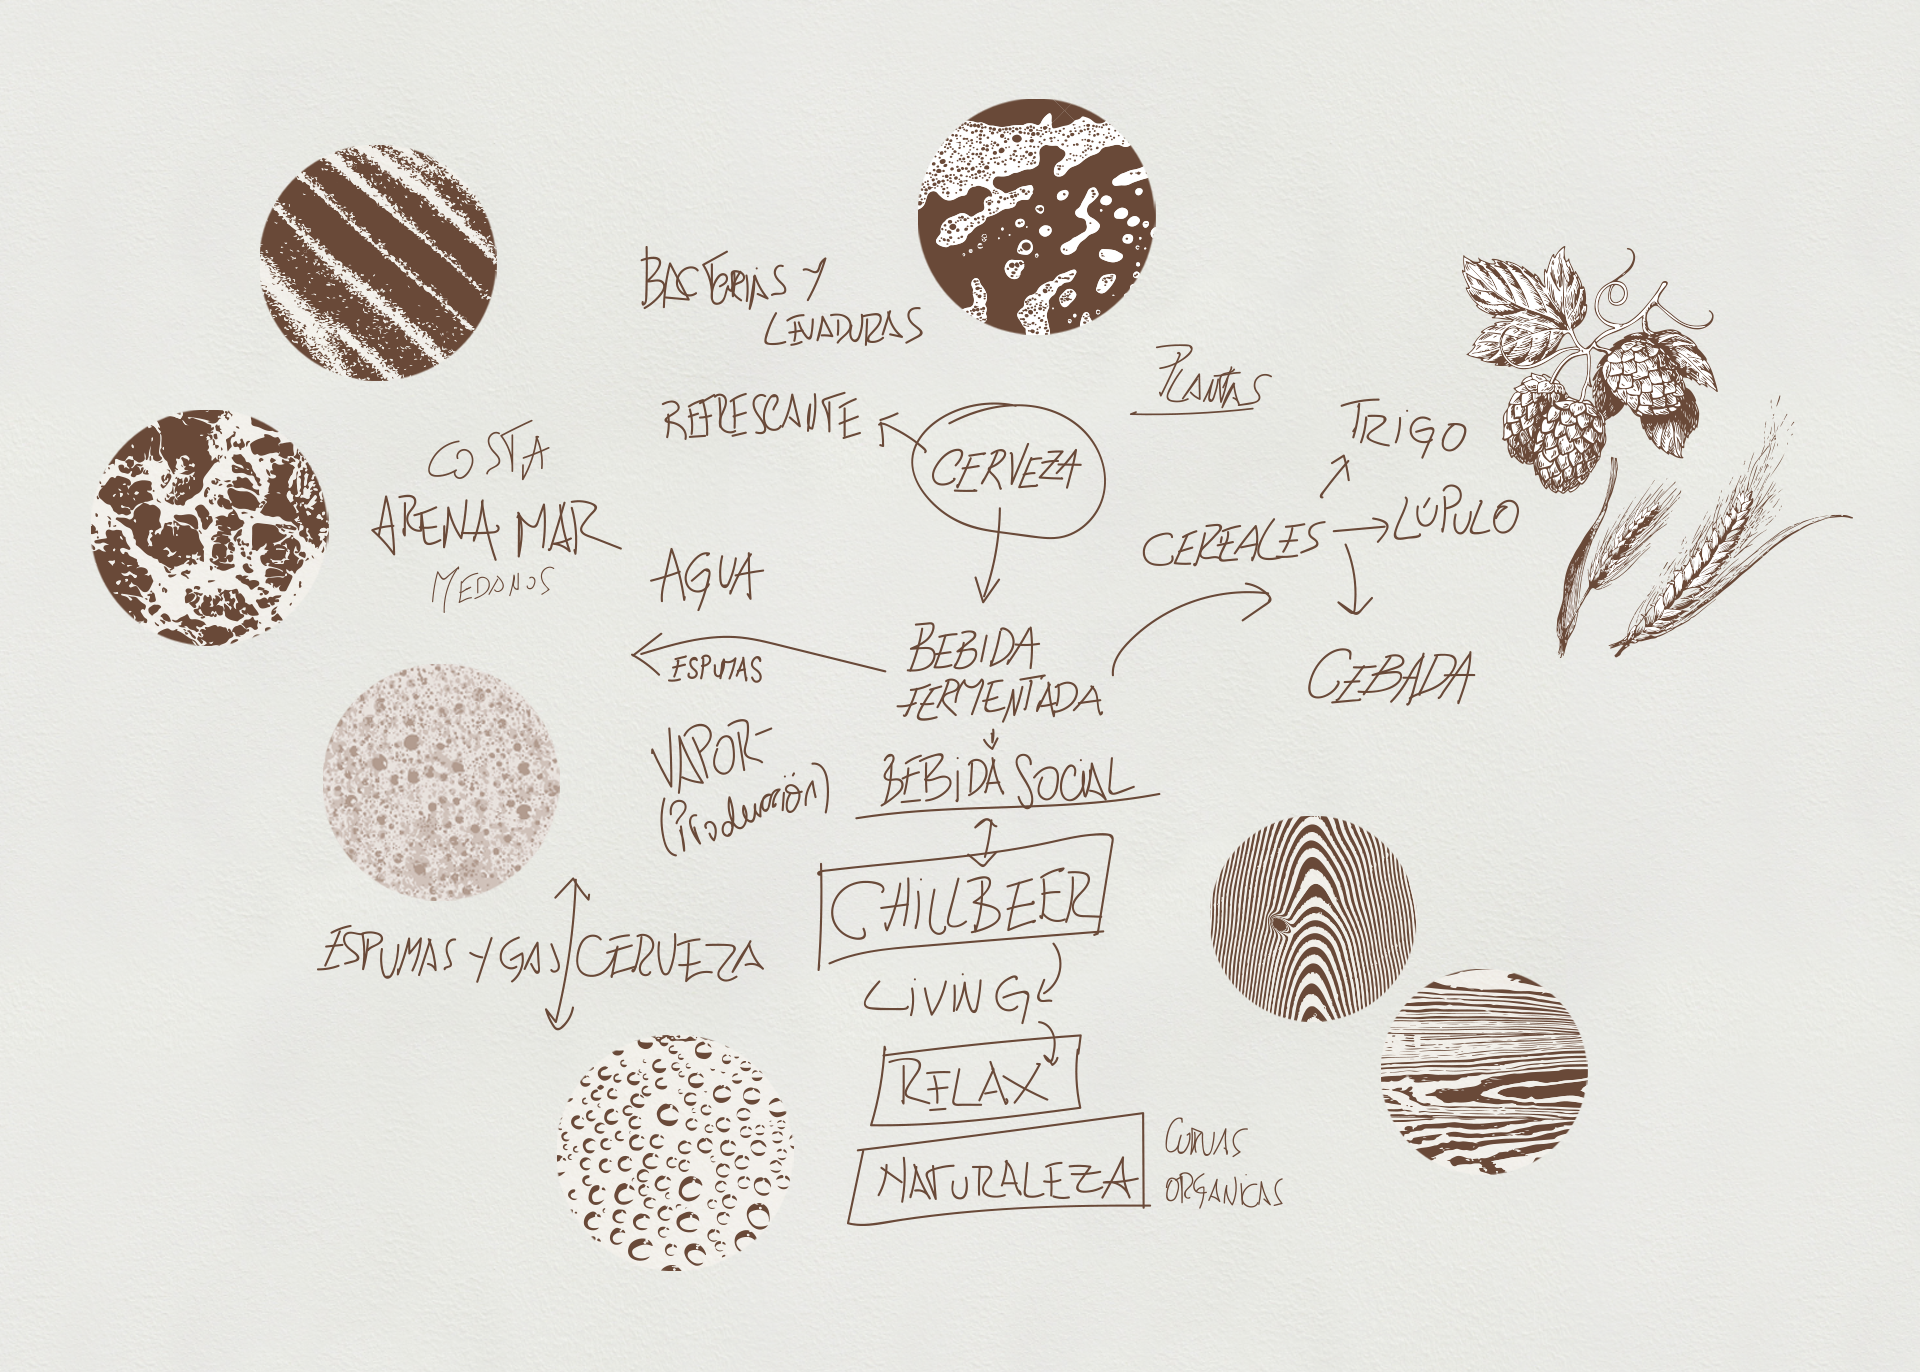 BACTERIAS Y
LEVADURAS
PLANTAS
REFRESCANTE
CERVEZA
TRIGO
COSTA
ARENA MAR
MEDANOS
AGUA
CEREALES
LÚPULO
ESPUMAS
BEBIDA
FERMENTADA
CEBADA
VAPOR
(Producción)
BEBIDA SOCIAL
CHILLBEER
ESPUMAS Y GAS CERVEZA
LIVING
RELAX
NATURALEZA
CURVAS
ORGANICAS